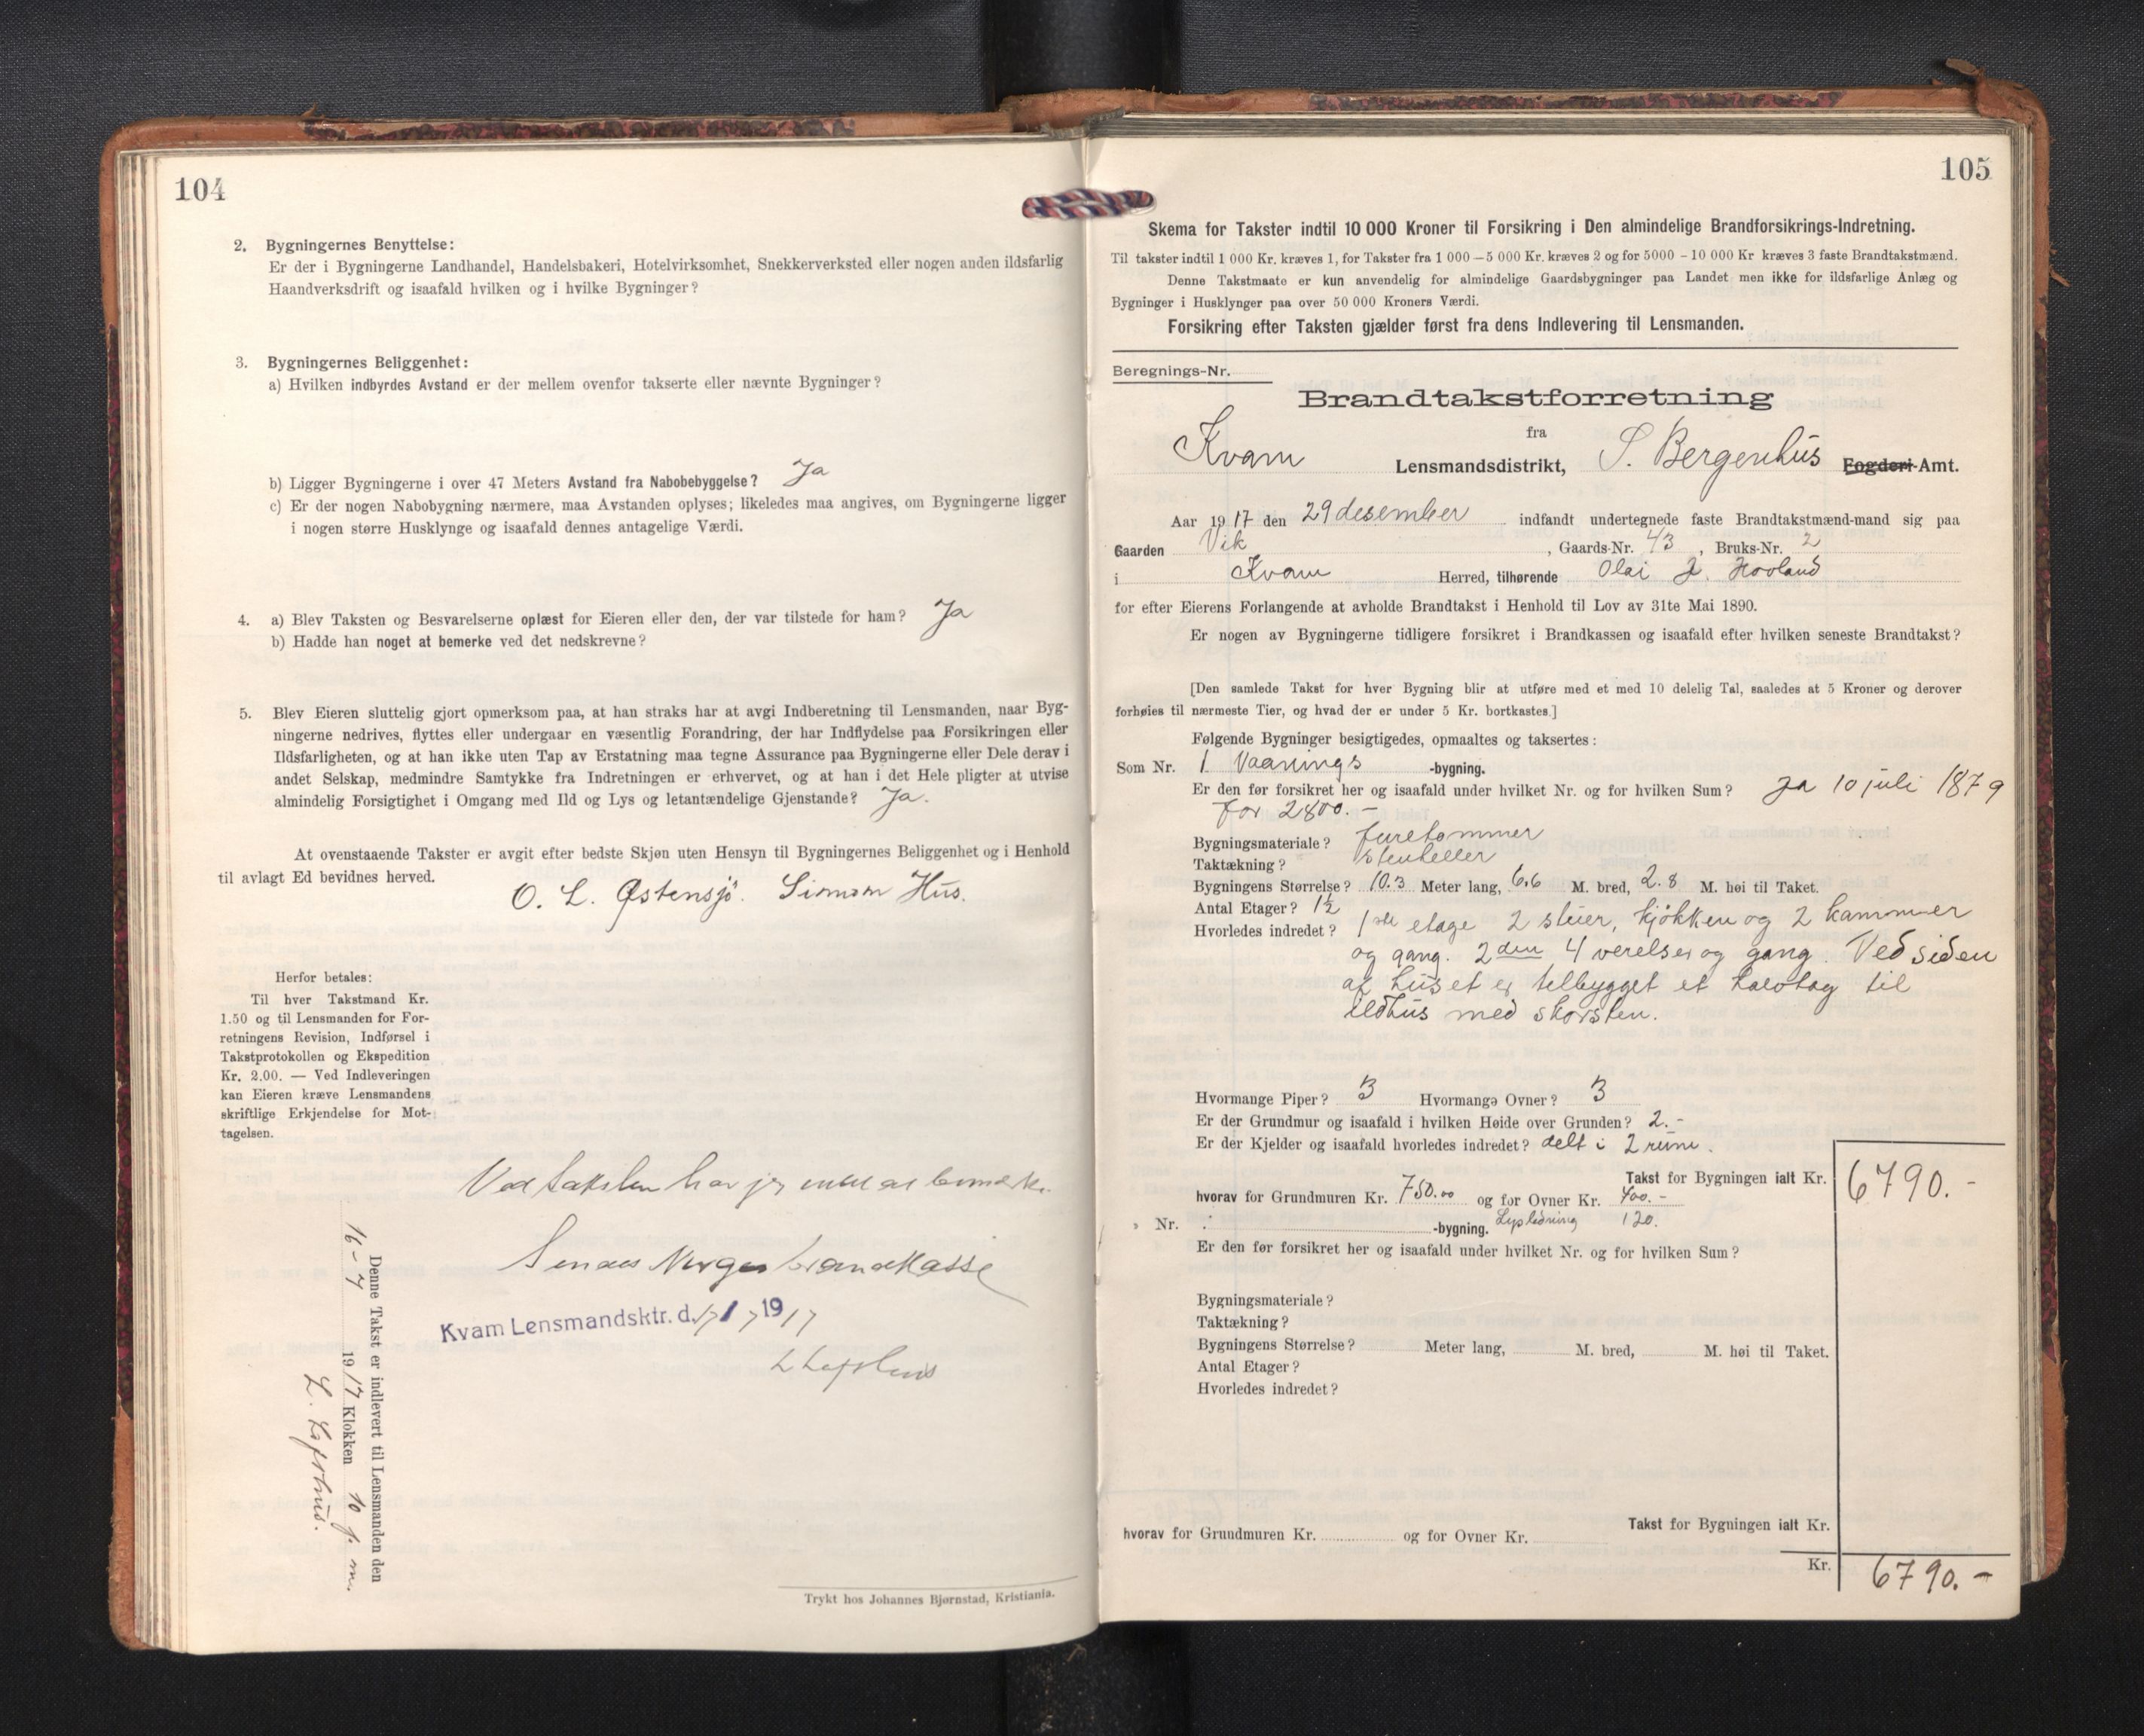 104
2. Bygningernes Benyttelse:
Er der i Bygningerne Landhandel, Handelsbakeri, Hotelvirksomhet, Snekkerverksted eller nogen anden ildsfarlig
Haandverksdrift og isaafald hvilken og i hvilke Bygninger?
3. Bygningernes Beliggenhet:
a) Hvilken indbyrdes Avstand er der mellem ovenfor takserte eller nævnte Bygninger?
b) Ligger Bygningerne i over 47 Meters Avstand fra Nabobebyggelse? Ja
c) Er der nogen Nabobygning nærmere, maa Avstanden oplyses; likeledes maa angives, om Bygningerne ligger
i nogen større Husklynge og isaafald dennes antagelige Værdi.
4. a) Blev Taksten og Besvarelserne oplæst for Eieren eller den, der var tilstede for ham? Ja
b) Hadde han noget at bemerke ved det nedskrevne?
5. Blev Eieren sluttelig gjort opmerksom paa, at han straks har at avgi Indberetning til Lensmanden, naar Byg-
ningerne nedrives, flyttes eller undergaar en væsentlig Forandring, der har Indflydelse paa Forsikringen eller
Ildsfarligheten, og at han ikke uten Tap av Erstatning maa tegne Assurance paa Bygningerne eller Dele derav i
andet Selskap, medmindre Samtykke fra Indretningen er erhvervet, og at han i det Hele pligter at utvise
almindelig Forsigtighet i Omgang med Ild og Lys og letantændelige Gjenstande? Ja.
At ovenstaaende Takster er avgit efter bedste Skjøn uten Hensyn til Bygningernes Beliggenhet og i Henhold
til avlagt Ed bevidnes herved.
O. L. Østensjö. Simon Hus.
Herfor betales:
Til hver Takstmand Kr.
1.50 og til Lensmanden for For-
retningens Revision, Indførsel i
Takstprotokollen og Ekspedition
Kr. 2.00. — Ved Indleveringen
kan Eieren kræve Lensmandens
skriftlige Erkjendelse for Mot-
tagelsen.
Ved taksten har jeg intet at bemerke.
Sendes Norges brandkasse
Kvam Lensmandsktr. d. 17/7 1917
L Lofthus
Denne Takst er indlevert til Lensmanden den
16-7 1917 Klokken 10 f. m.
L. Lofthus.
Trykt hos Johannes Bjørnstad, Kristiania.
105
Skema for Takster indtil 10 000 Kroner til Forsikring i Den almindelige Brandforsikrings-Indretning.
Til takster indtil 1 000 Kr. kræves 1, for Takster fra 1 000 – 5 000 Kr. kræves 2 og for 5000 - 10 000 Kr kræves 3 faste Brandtakstmænd.
Denne Takstmaate er kun anvendelig for almindelige Gaardsbygninger paa Landet men ikke for ildsfarlige Anlæg og
Bygninger i Husklynger paa over 50 000 Kroners Værdi.
Forsikring efter Taksten gjælder først fra dens Indlevering til Lensmanden.
Beregnings-Nr.
Brandtakstforretning
fra
Kvam Lensmandsdistrikt, S. Bergenhus Fogderi-Amt.
Aar 1917 den 29 desember indfandt undertegnede faste Brandtakstmænd-mand sig paa
Gaarden Vik, Gaards-Nr. 43, Bruks-Nr. 2
i Kvam Herred, tilhørende Olai J. Hovland
for efter Eierens Forlangende at avholde Brandtakst i Henhold til Lov av 31te Mai 1890.
Er nogen av Bygningerne tidligere forsikret i Brandkassen og isaafald efter hvilken seneste Brandtakst?
[Den samlede Takst for hver Bygning blir at utføre med et med 10 delelig Tal, saaledes at 5 Kroner og derover
forhøies til nærmeste Tier, og hvad der er under 5 Kr. bortkastes.]
Følgende Bygninger besigtigedes, opmaaltes og taksertes:
Som Nr. 1 Vaanings -bygning.
Er den før forsikret her og isaafald under hvilket Nr. og for hvilken Sum? Ja 10 juli 1879
for 2800.-
Bygningsmateriale? furetømmer
Taktækning? stenheller
Bygningens Størrelse? 10.3 Meter lang, 6.6 M. bred, 2.8 M. høi til Taket.
Antal Etager? 1½
Hvorledes indredet? 1ste etage 2 stuer, kjökken og 2 kammer
og gang. 2den 4 verelser og gang. Ved siden
af huset er tilbygget et halvtag til
ildhus med skorsten.
Hvormange Piper? 3 Hvormange Ovner? 3
Er der Grundmur og isaafald i hvilken Høide over Grunden? 2.-
Er der Kjelder og isaafald hvorledes indredet? delt i 2 rum.
Takst for Bygningen ialt Kr. 6790.-
hvorav for Grundmuren Kr. 750.00 og for Ovner Kr. 400.-
Nr. -bygning. Lysledning 120.
Er den før forsikret her og isaafald under hvilket Nr. og for hvilken Sum?
Bygningsmateriale?
Taktækning?
Bygningens Størrelse? Meter lang, M. bred, M. høi til Taket.
Antal Etager?
Hvorledes indredet?
Takst for Bygningen ialt Kr.
hvorav for Grundmuren Kr. og for Ovner Kr.
Kr. 6790.-